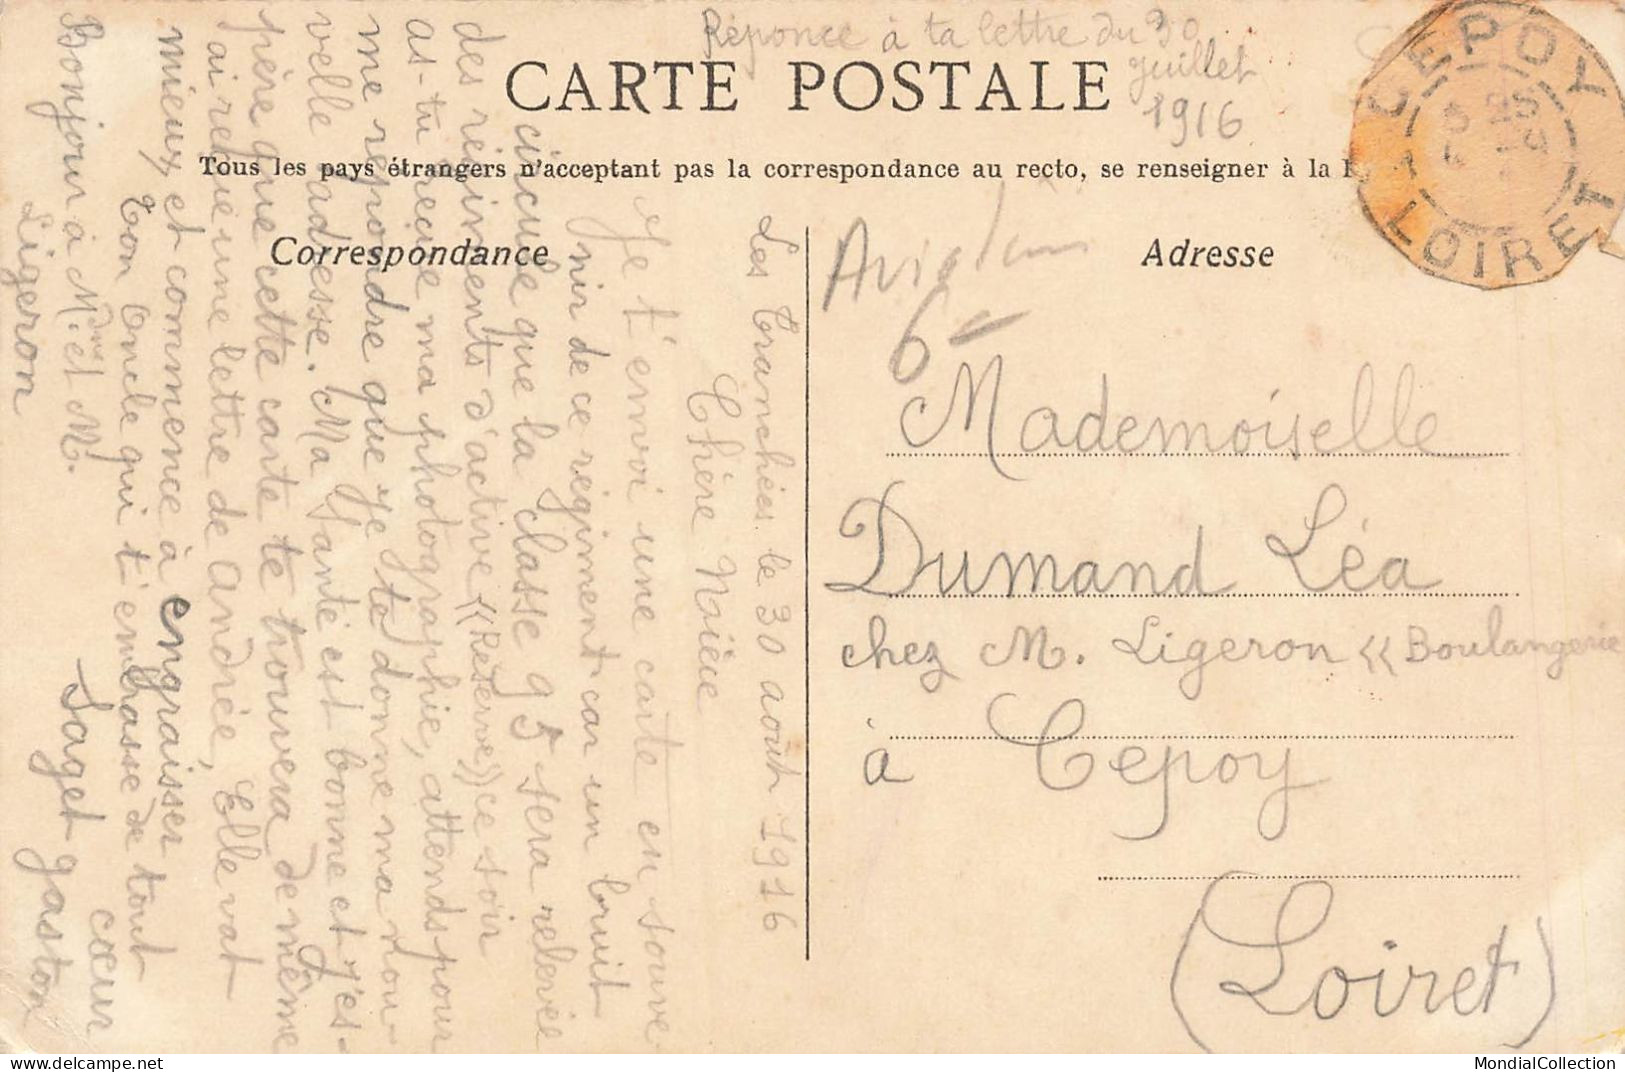 Réponce à ta lettre du 30
juillet
1916
CARTE POSTALE
Tous les pays étrangers n'acceptent pas la correspondance au recto, se renseigner à la
Correspondance
Adresse
CEPOY
LOIRET
Les Tranchées le 30 août 1916
Chère Nièce
Je t'envoi une carte en souve-
nir de ce régiment car un bruit
circule que la classe 95 sera relevée
des régiments d'active «Réserve» ce soir
as-tu reçue ma photographie, attends pour
me repondre que je te donne ma nou-
velle adresse. Ma Santé est bonne et j'es-
père que cette carte te trouvera de même
J'ai reçue une lettre de Andrée, Elle vat
mieux et commence à engraisser
Ton Oncle qui t'embrasse de tout
cœur
Bonjour à Mme et M.
Ligeron
Saget gaston
6e
Mademoiselle
Dumand Léa
chez M. Ligeron «Boulangerie
à Cepoy
(Loiret)
delcampe.net
MondialCollection